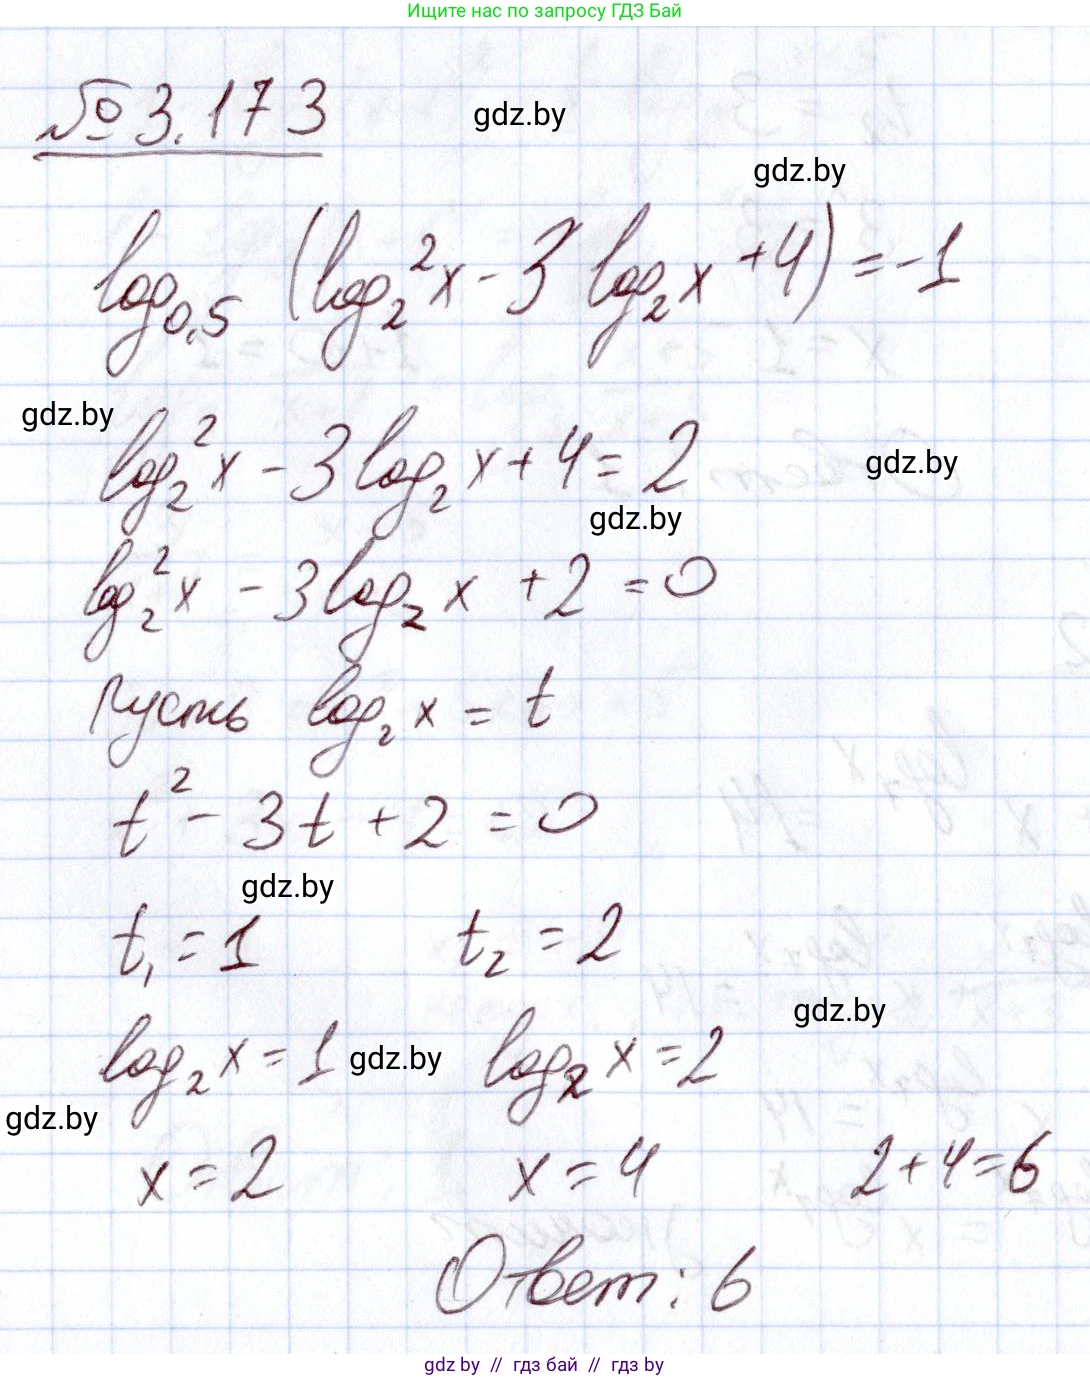 Ищите нас по запросу ГДЗ Бай
№ 3.173
gdz.by
gdz.by
log₀,₅ (log₂²x - 3 log₂x + 4) = -1
gdz.by
log₂²x - 3 log₂x + 4 = 2
gdz.by
gdz.by
log₂²x - 3 log₂x + 2 = 0
Пусть log₂x = t
t² - 3t + 2 = 0
gdz.by
t₁ = 1 t₂ = 2
gdz.by
log₂x = 1 gdz.by log₂x = 2
gdz.by
x = 2 x = 4 2 + 4 = 6
Ответ: 6
gdz by // гдз бай // гдз by